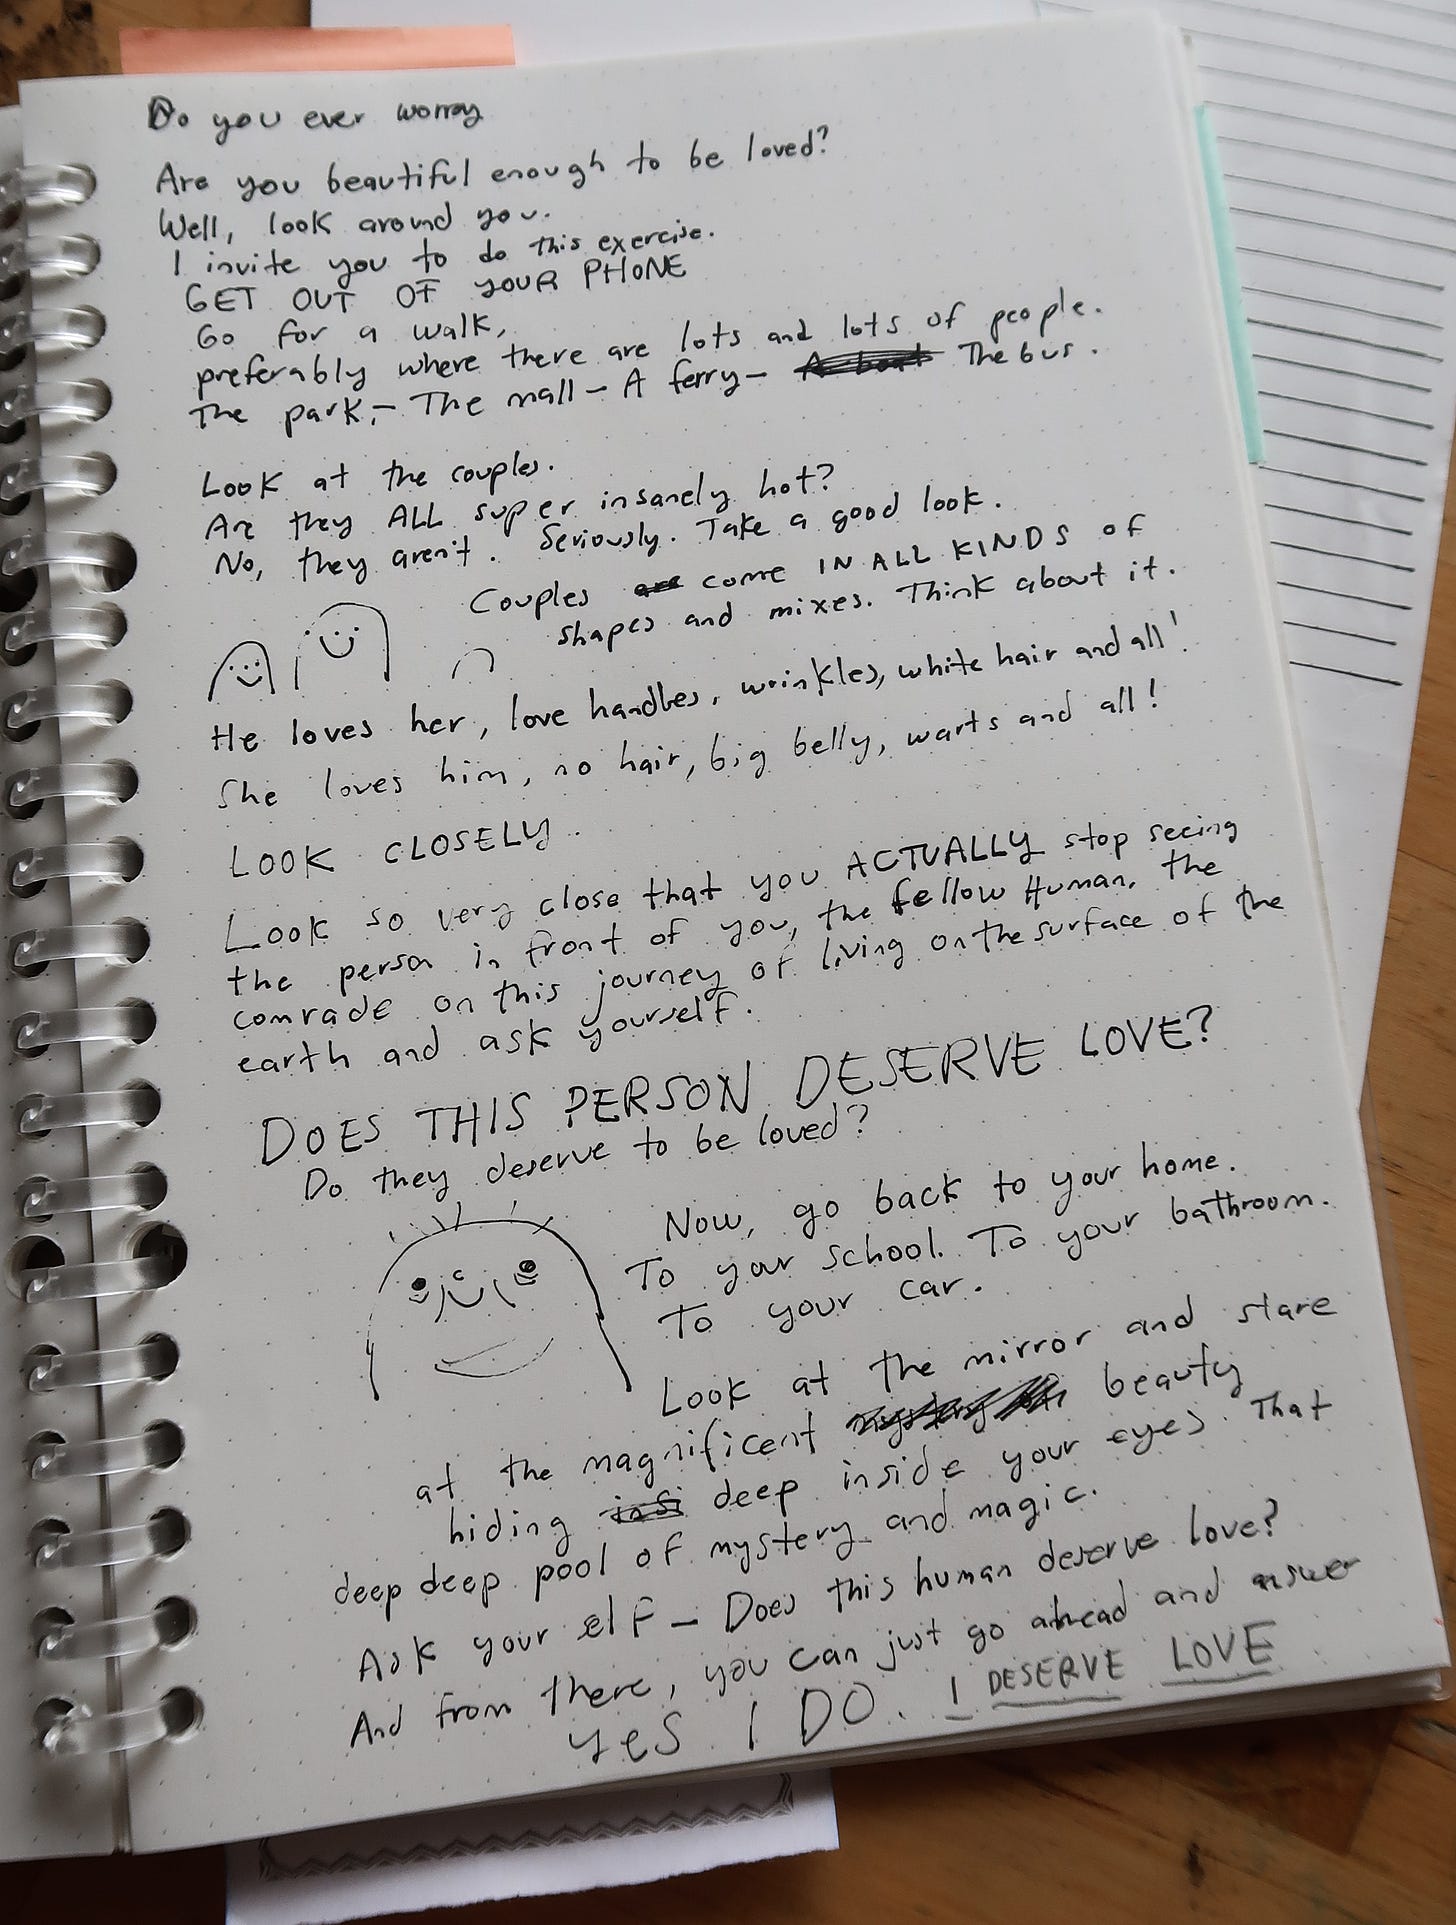 Do you ever worray
Are you beautiful enough to be loved?
Well, look around you.
I invite you to do this exercise.
GET OUT OF YOUR PHONE
Go for a walk,
preferably where there are lots and lots of people.
The park, - The mall - A ferry - The bus.
Look at the couples.
Are they ALL super insanely hot?
No, they aren't. Seriously. Take a good look.
Couples come IN ALL KINDS OF
shapes and mixes. Think about it.
He loves her, love handles, wrinkles, white hair and all!
She loves him, no hair, big belly, warts and all!
LOOK CLOSELY.
Look so very close that you ACTUALLY stop seeing
the person in front of you, the fellow Human. the
comrade on this journey of living on the surface of the
earth and ask yourself.
DOES THIS PERSON DESERVE LOVE?
Do they deserve to be loved?
Now, go back to your home.
To your school. To your bathroom.
To your car.
Look at the mirror and stare
at the magnificent beauty
hiding deep inside your eyes. That
deep deep pool of mystery and magic.
Ask your elf - Does this human deserve love?
And from there, you can just go ahead and answer
Yes I DO. I DESERVE LOVE